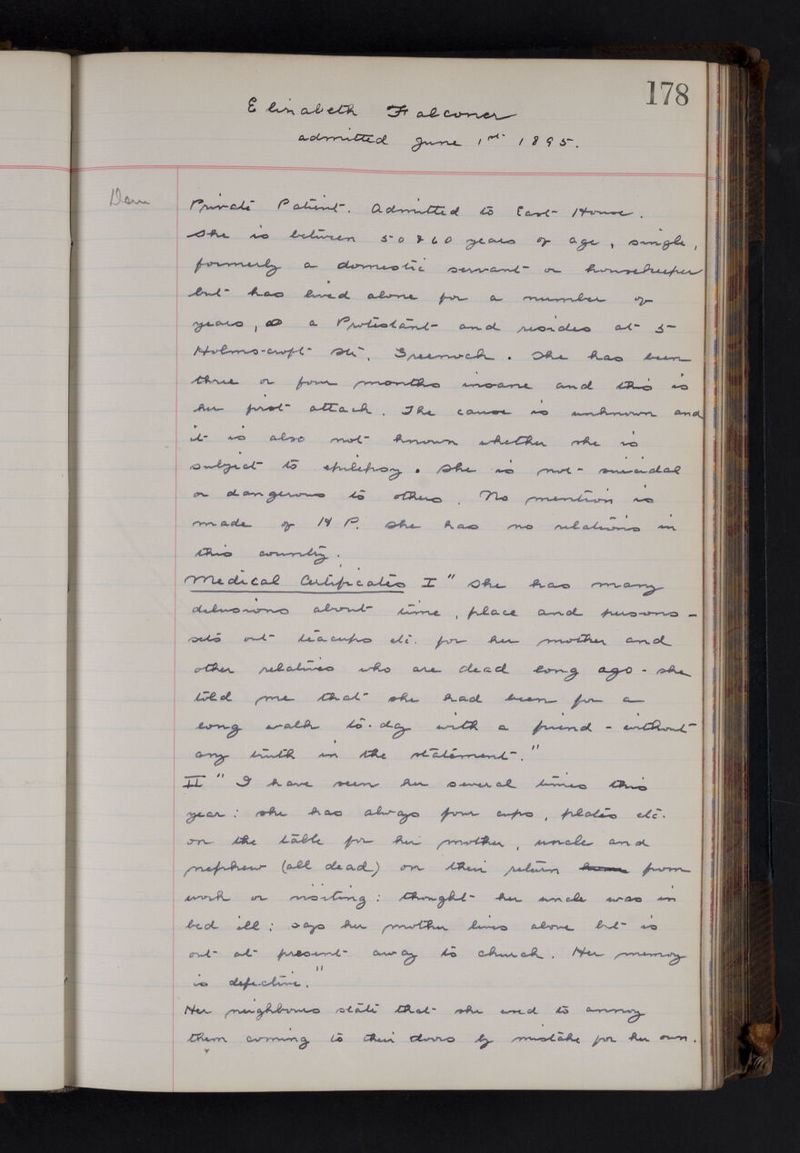 178
Elizabeth Falconer
admitted June 1st 1895.
Dem
Private Patient. Admitted to East House.
She is between 50 & 60 years of age, single,
formerly a domestic servant or housekeeper
but has lived alone for a number of
years, a Protestant and resides at 5
Holms-croft St., Greenock. She has been
three or four months insane and this is
her first attack. The cause is unknown and
it is also not known whether she is
subject to epilepsy. She is not suicidal
or dangerous to others. No mention is
made of H P. She has no relations in
this country.
Medical Certificates I " She has many
delusions about time, place and persons -
sets out teacups etc. for her mother and
other relatives who are dead long ago - she
told me that she had been for a
long walk to-day with a friend - without
any truth in the statement."
II " I have seen her several times this
year: she has always four cups, plates etc.
on the table for her mother, uncle and
nephew (all dead) on their return home from
work or visiting: thought her uncle was in
bed ill: says her mother lives above but is
out at present away to church. Her memory
is defective."
Her neighbours state that she used to annoy
them coming to their doors by mistake for her own.